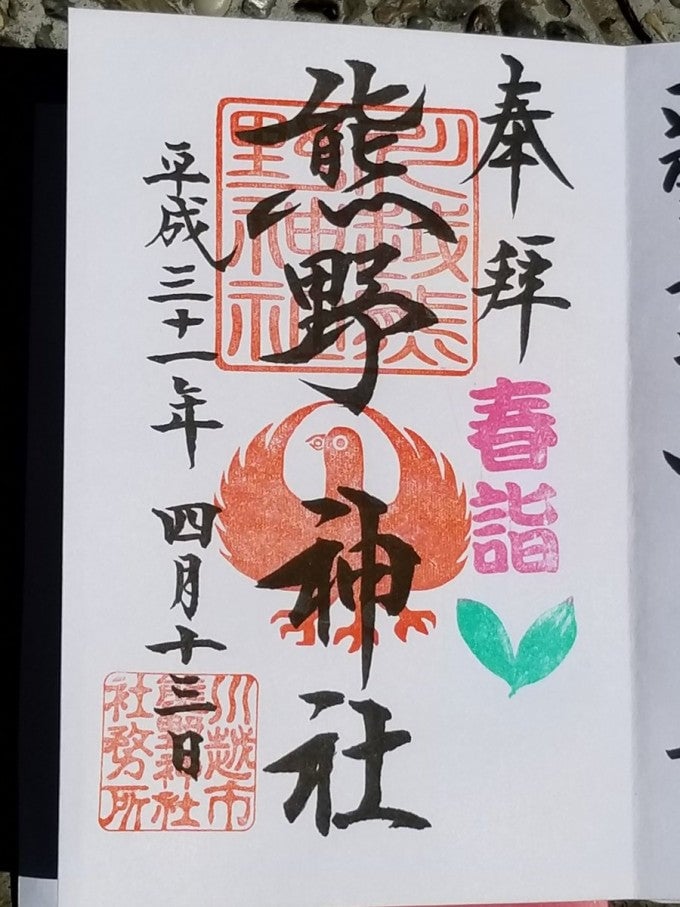 奉拝
春詣
熊野神社
川越熊
野神社
平成三十一年 四月十三日
川越市
熊野神社
社務所